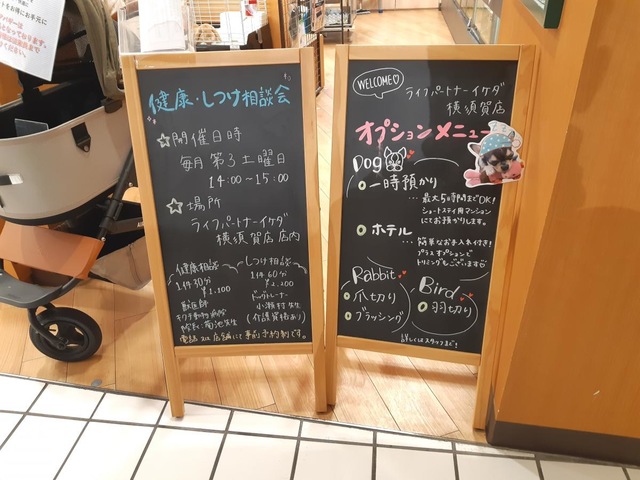 健康・しつけ相談会
☆開催日時
毎月第3土曜日
14:00〜15:00
☆場所
ライフパートナーイケダ
横須賀店 店内
健康相談
1件30分
¥1.100
獣医師
キクチ動物病院
院長：菊池先生
しつけ相談
1件60分
¥2.200
ドッグトレーナー
小瀬村先生
(介護資格あり)
電話又は店舗にて事前予約制です。
WELCOME♡
ライフパートナーイケダ
横須賀店
オプションメニュー
Dog
一時預かり
…最大5時間までOK!
ショートステイ用マンション
にてお預かりします。
ホテル
…簡単なお手入れ付き!
プラスオプションで
トリミングもございます♡
Rabbit
爪切り
ブラッシング
Bird
羽切り
詳しくはスタッフまで!